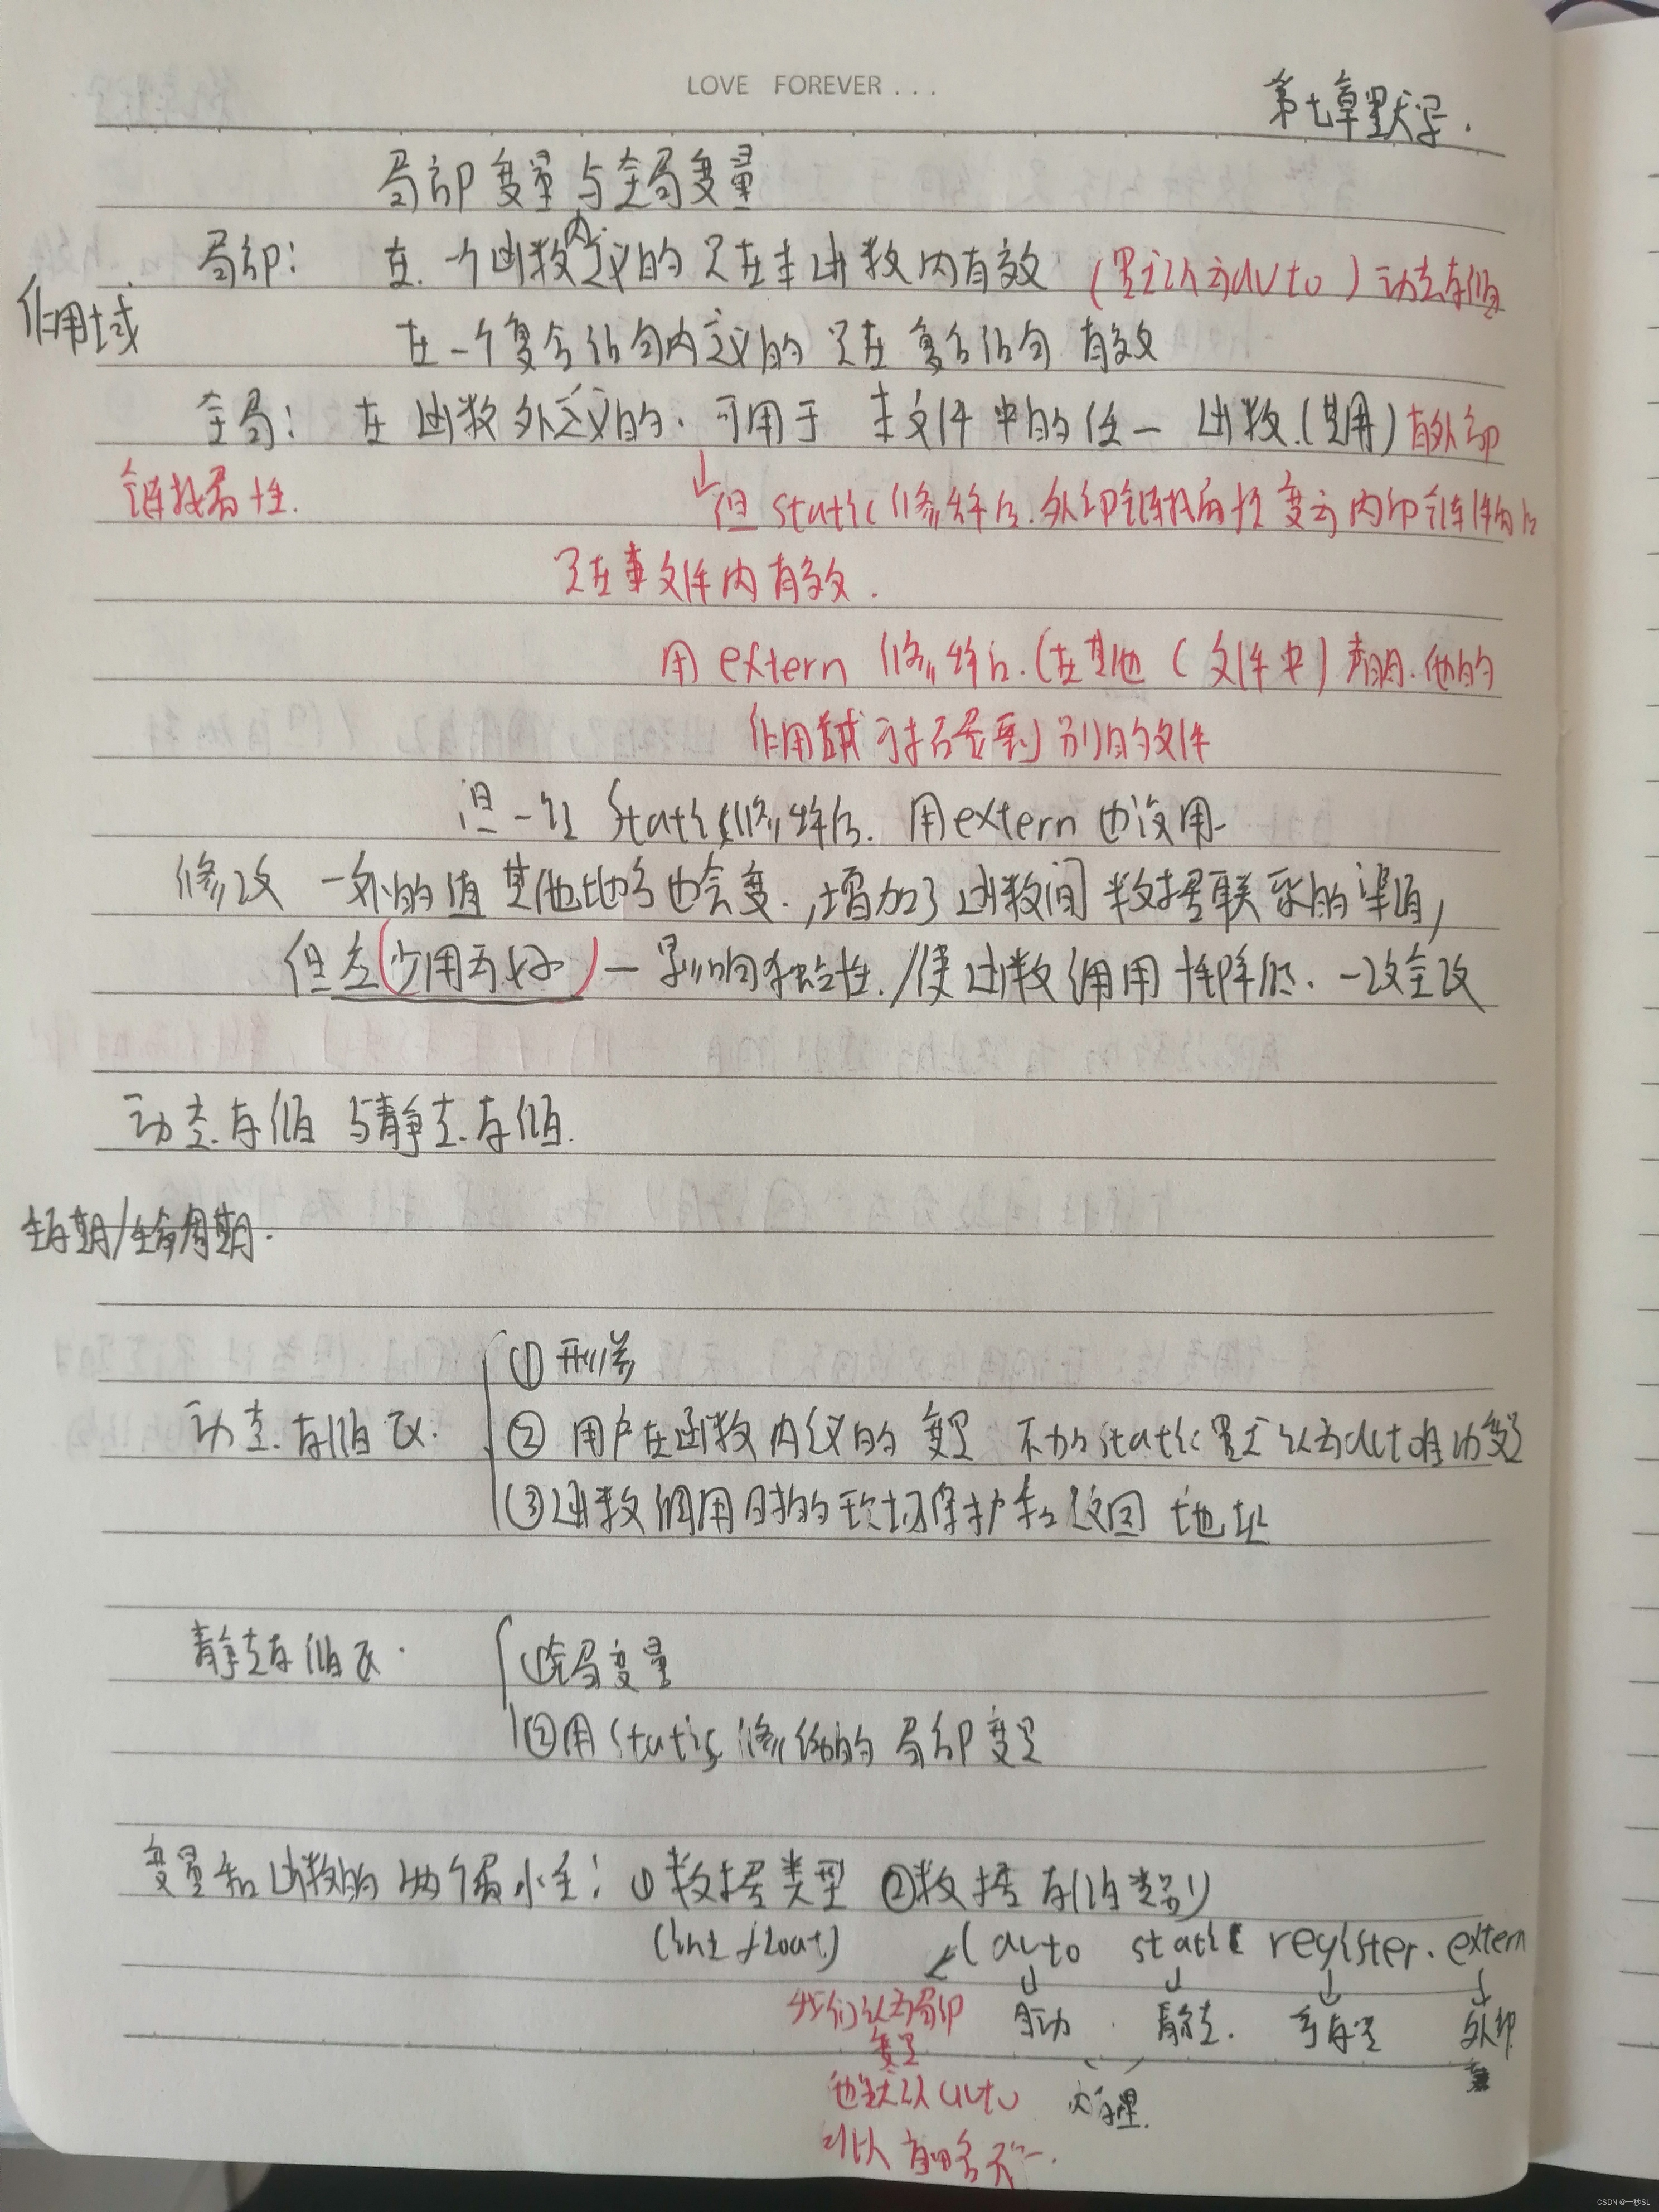 LOVE FOREVER...
第七章默写.
局部变量与全局变量
局部: 在一个函数内定义的只在本函数内有效 (默认为auto) 动态存储
作用域
在一个复合语句内定义的只在复合语句有效
全局: 在函数外定义的.可用于本文件中的任一函数.(共用) 有外部
链接属性.
↓但static修饰后.外部链接属性变为内部链接
只在本文件内有效.
用extern修饰后.(在其他(文件中)声明.他的
作用域可拓展到别的文件
但一经static修饰后.用extern也没用
修改一处的值其他地方也会变.,增加了函数间数据联系的渠道,
但是(少用为好)—影响独立性./使函数通用性降低.一改全改
动态存储与静态存储.
生存期/生命周期.
动态存储区. ①形参
②用户在函数内定义的变量 不加static默认为auto自动变量
③函数调用时的现场保护和返回地址
静态存储区. ①全局变量
②用static修饰的局部变量
变量和函数的两个属性: ①数据类型 ②数据存储类别
(int float) (auto static register. extern
我们认为局部 自动 静态. 寄存器 外部
变量
也默认auto 内存里.
可以省略不